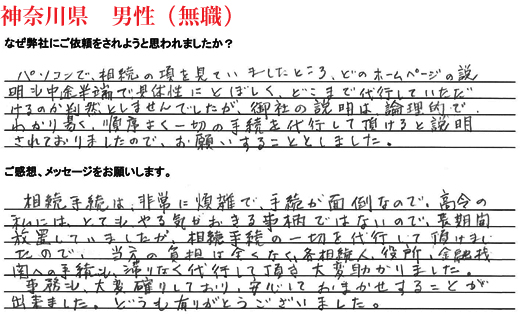 神奈川県　男性（無職）
なぜ弊社にご依頼をされようと思われましたか？
パソコンで、相続の項を見ていましたところ、どのホームページの説
明も中途半端で具体性にとぼしく、どこまで代行していただ
けるのか判然としませんでしたが、御社の説明は論理的で、
わかり易く、順序よく一切の手続を代行して頂けると説明
されておりましたので、お願いすることとしました。
ご感想、メッセージをお願いします。
相続手続は、非常に煩雑で、手続が面倒なので、高令の
私には、とてもやる気がおきる事柄ではないので、長期間
放置していましたが、相続手続の一切を代行して頂けまし
たので、当方の負担は全くなく、各相続人、役所、金融機
関への手続も、滞りなく代行して頂き大変助かりました。
事務も、大変確りしており、安心しておまかせすることが
出来ました。どうも有りがとうございました。